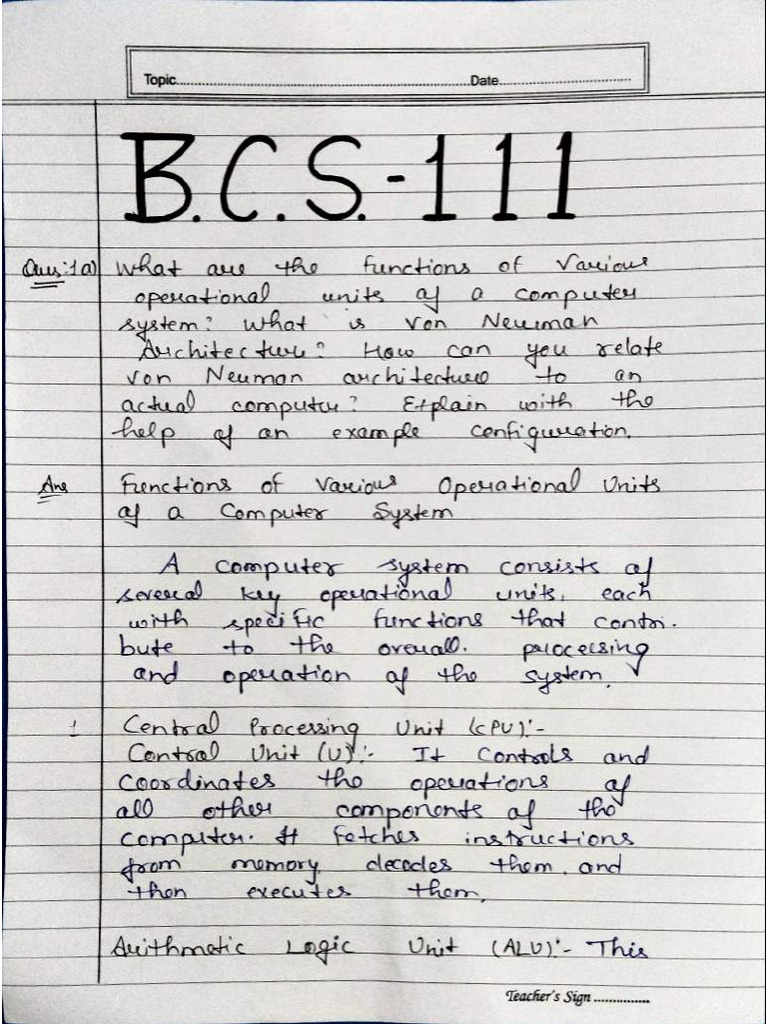 Topic..................Date..................
B.C.S.-111
Ques:1a) What are the functions of Various
operational units of a computer
system? What is von Neuman
Architecture? How can you relate
von Neuman architecture to an
actual computer? Explain with the
help of an example configuration.
Ans Functions of Various Operational Units
of a Computer System
A computer system consists of
several key operational units, each
with specific functions that contri-
bute to the overall. processing
and operation of the system.
1 Central Processing Unit (CPU):-
Control Unit (U):- It Controls and
Coordinates the operations of
all other components of the
computer. It fetches instructions
from memory decodes them, and
then executes them.
Arithmatic Logic Unit (ALU):- This
Teacher's Sign...............